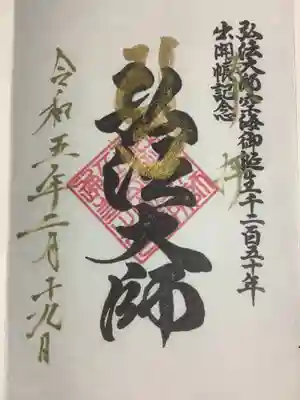 弘法大師空海御誕生千二百五十年
出開帳記念
奉拝
弘法大師
令和五年二月十九日